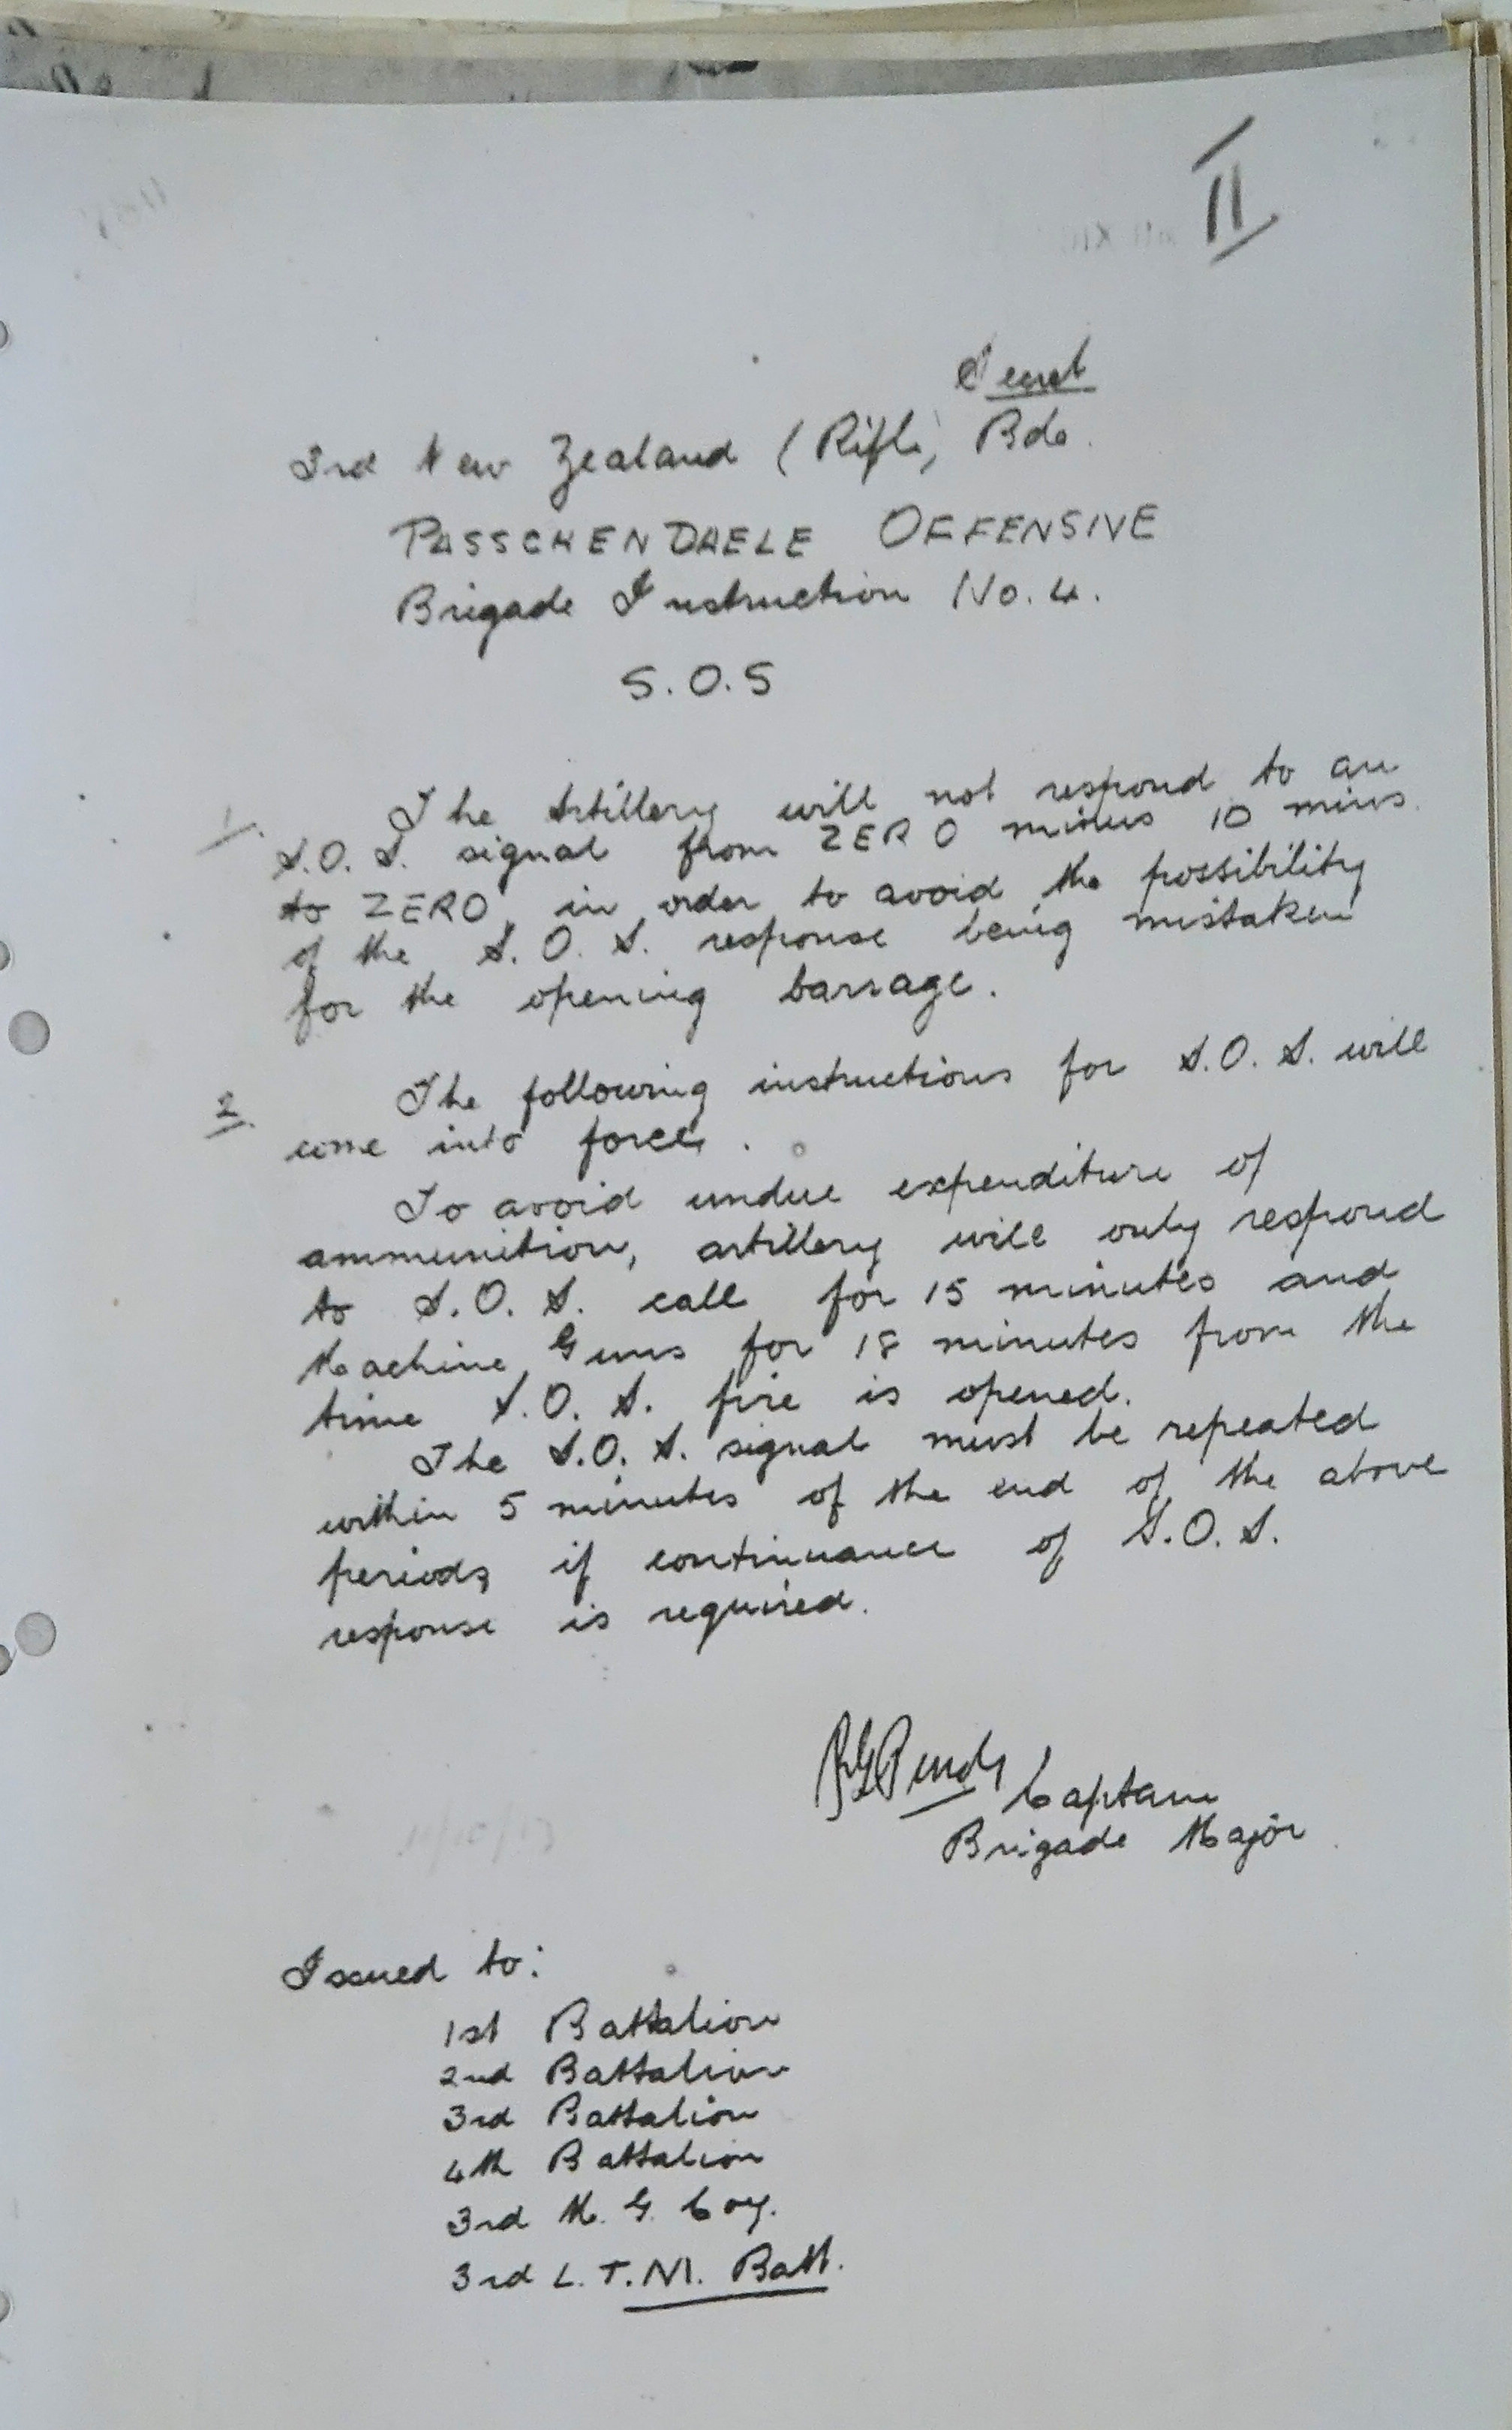 II
Secret
3rd New Zealand (Rifle) Bde.
PASSCHENDAELE OFFENSIVE
Brigade Instruction No. 4.
S.O.S
1. The Artillery will not respond to an
S.O.S. signal from ZERO minus 10 mins.
to ZERO, in order to avoid the possibility
of the S.O.S. response being mistaken
for the opening barrage.
2. The following instructions for S.O.S. will
come into force.
To avoid undue expenditure of
ammunition, artillery will only respond
to S.O.S. call for 15 minutes and
Machine Guns for 18 minutes from the
time S.O.S. fire is opened.
The S.O.S. signal must be repeated
within 5 minutes of the end of the above
periods if continuance of S.O.S.
response is required.
Captain
Brigade Major
Issued to:
1st Battalion
2nd Battalion
3rd Battalion
4th Battalion
3rd M.G. Coy.
3rd L.T.M. Batt.